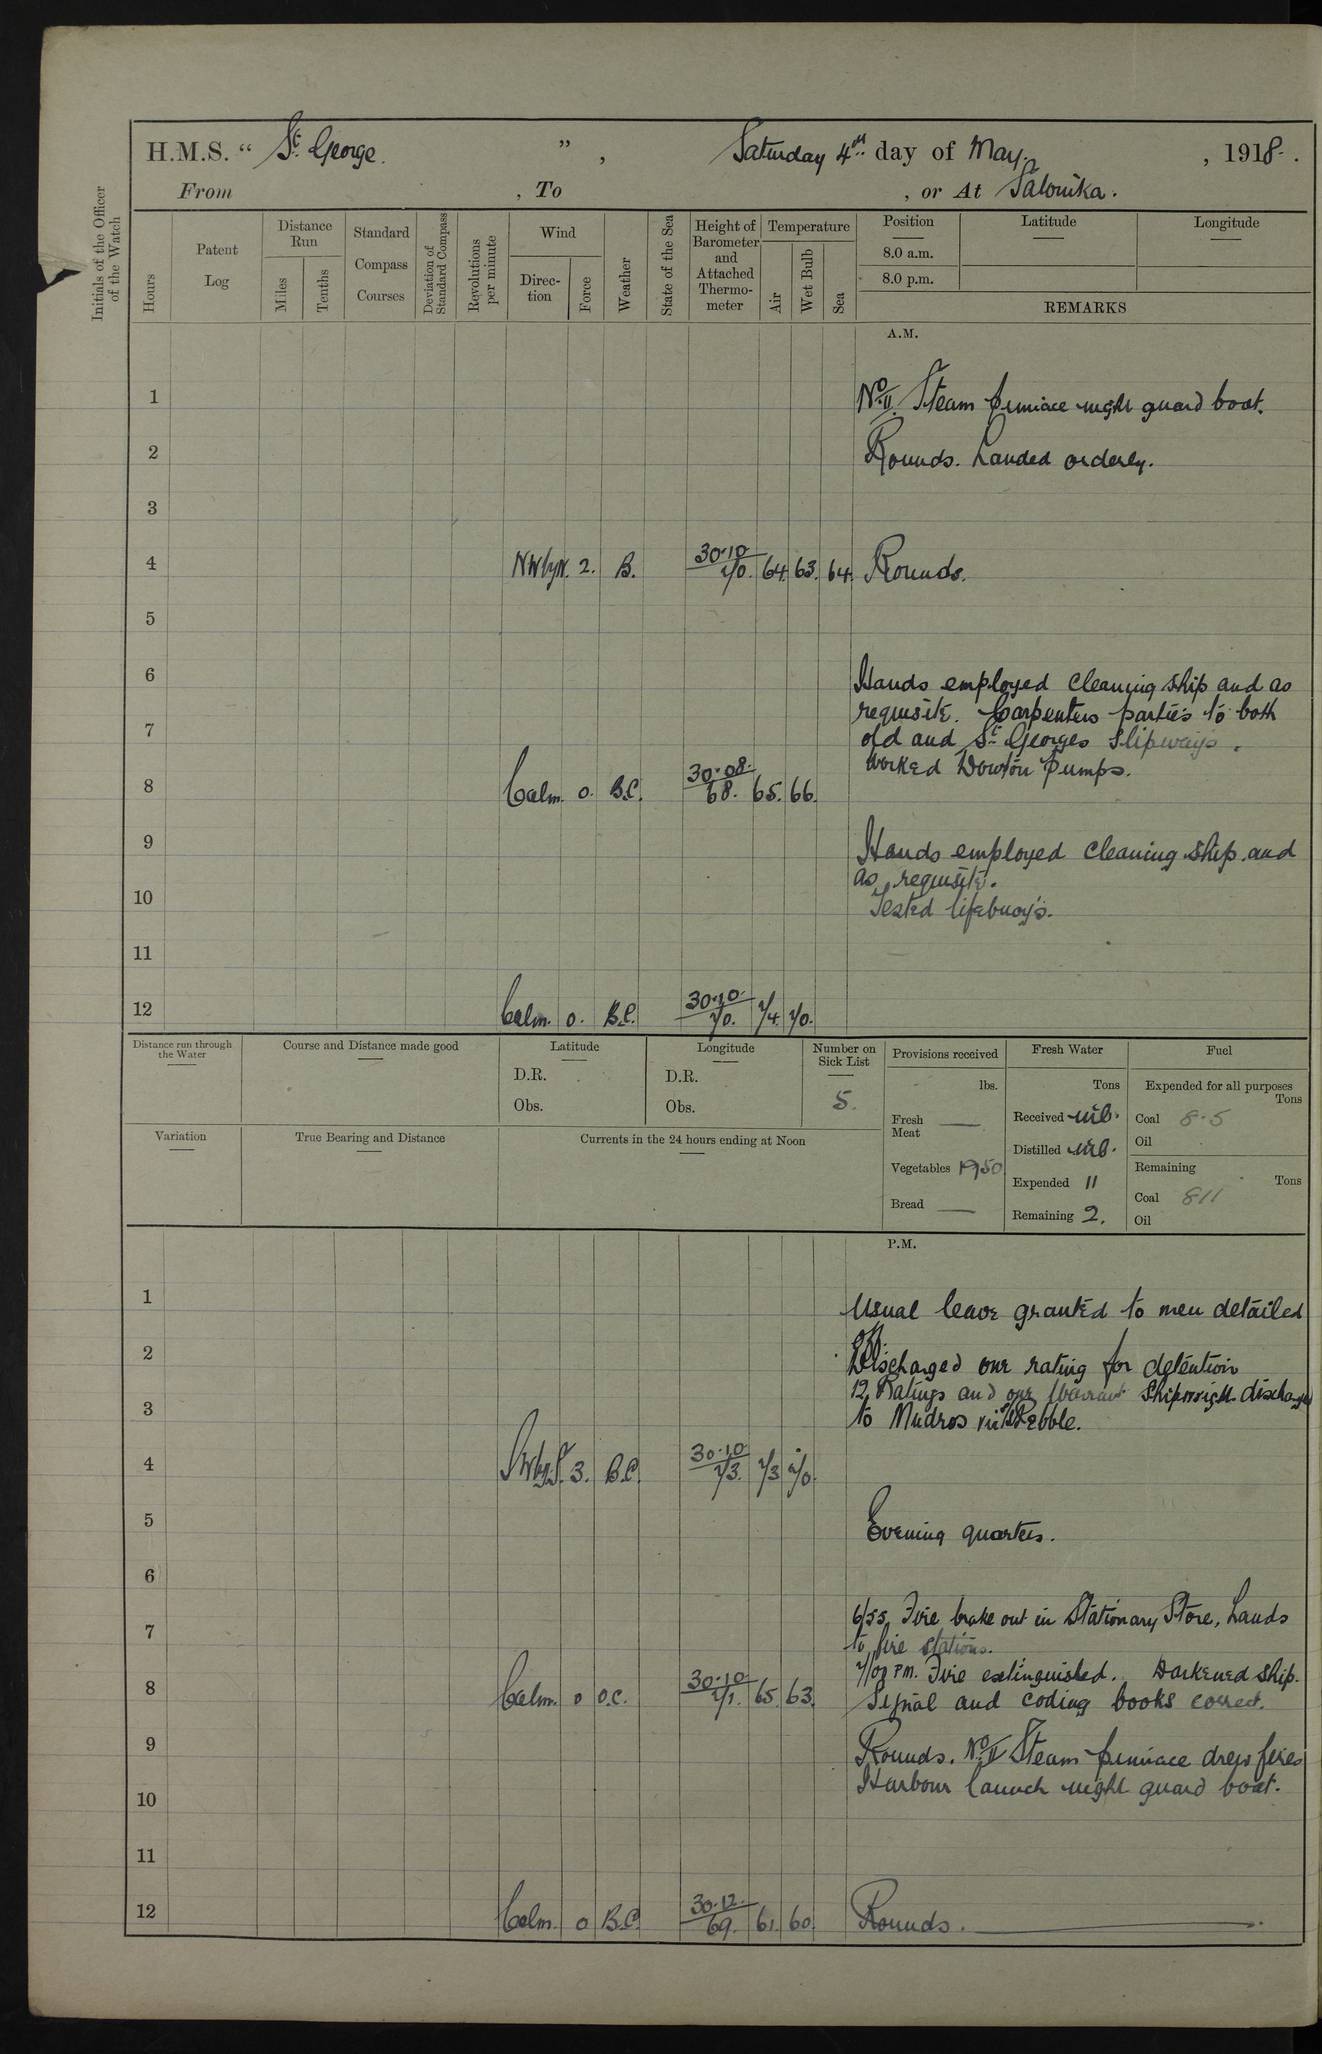 H.M.S. “ St George. ” , Saturday 4th day of May. , 1918.
From , To , or At Salonika.
Initials of the Officer of the Watch
Hours
Patent Log
Distance Run
Miles
Tenths
Standard Compass Courses
Deviation of Standard Compass
Revolutions per minute
Wind
Direc-tion
Force
Weather
State of the Sea
Height of Barometer and Attached Thermo-meter
Temperature
Air
Wet Bulb
Sea
Position
8.0 a.m.
8.0 p.m.
Latitude
Longitude
REMARKS
A.M.
1 No II. Steam pinnace night guard boat.
2 Rounds. Landed orderly.
3
4 NWbyN. 2. B. 30.10 70. 64. 63. 64. Rounds.
5
6 Hands employed cleaning ship and as
requisite. Carpenters parties to both
7 old and St Georges Slipways.
worked Dowton Pumps.
8 Calm. 0. B.C. 30.08. 68. 65. 66.
9 Hands employed cleaning ship and
as requisite.
10 Tested lifebuoys.
11
12 Calm. 0. B.C. 30.10. 70. 74. 70.
Distance run through the Water
Course and Distance made good
Latitude
D.R.
Obs.
Longitude
D.R.
Obs.
Number on Sick List
5.
Provisions received
lbs.
Fresh Meat —
Vegetables 1950
Bread —
Fresh Water
Tons
Received nil.
Distilled nil.
Expended 11
Remaining 2.
Fuel
Expended for all purposes
Tons
Coal 8.5
Oil
Remaining
Tons
Coal 811
Oil
Variation
True Bearing and Distance
Currents in the 24 hours ending at Noon
P.M.
1 Usual leave granted to men detailed
off.
2 Discharged one rating for detention
12 Ratings and one Warrant Shipwright discharged
3 to Mudros in Pebble.
4 SWbyS. 3. B.C. 30.10 73. 73 70.
5 Evening quarters.
6
6/55 Fire brake out in Stationary Store, hands
7 to fire stations.
7/07 PM. Fire extinguished. Darkened ship.
8 Calm. 0 O.C. 30.10 71. 65. 63. Signal and coding books correct.
9 Rounds. No II Steam pinnace drew fires
Harbour launch night guard boat.
10
11
12 Calm. 0 B.C. 30.12. 69. 61. 60. Rounds.